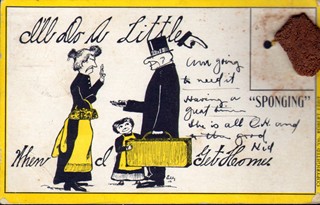 I'll Do A Little
Am going
to need it
Having a
great time
She is all O.K. and
the good
Kid
"SPONGING"
When I Get Home